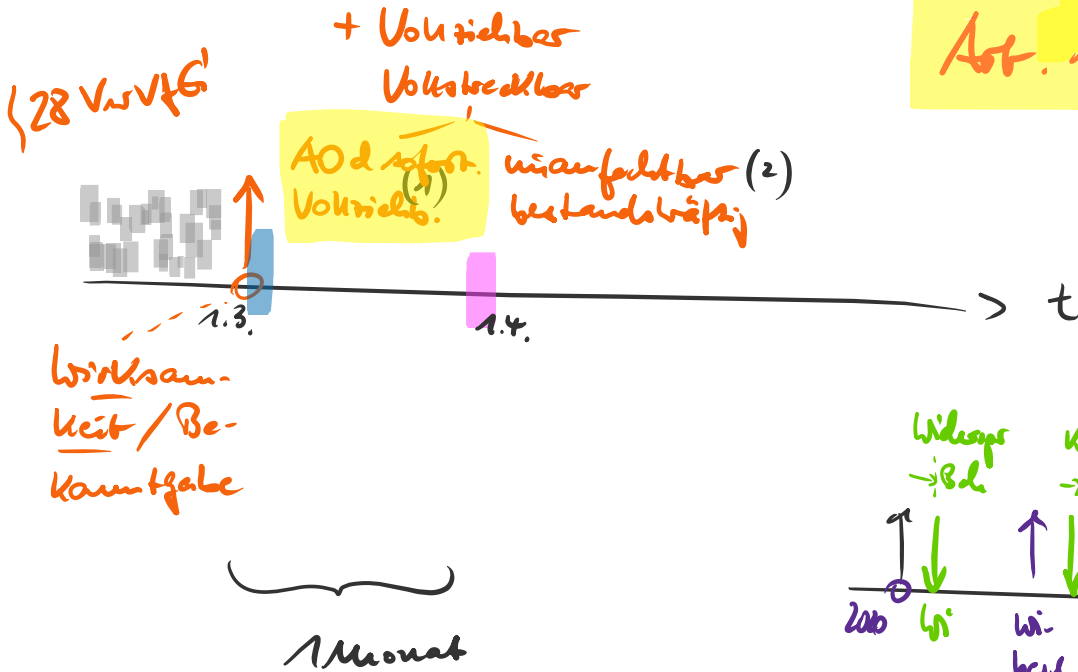 + Vollziehbar
Vollstreckbar
Art.
§28 VwVfG
AO d sofort. (1)
Vollziehb.
unanfechtbar (2)
bestandskräftig
1.3.
1.4.
t
Wirksam-
keit / Be-
kanntgabe
1 Monat
Widerspr
→ Beh
Wi
Wi-